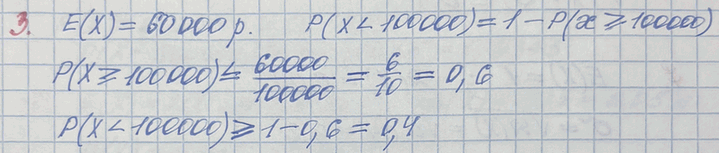 3. E(X) = 60000 р. P(X < 100000) = 1 - P(x ⩾ 100000)
P(X ⩾ 100000) ≤ 60000/100000 = 6/10 = 0,6
P(X < 100000) ⩾ 1 - 0,6 = 0,4